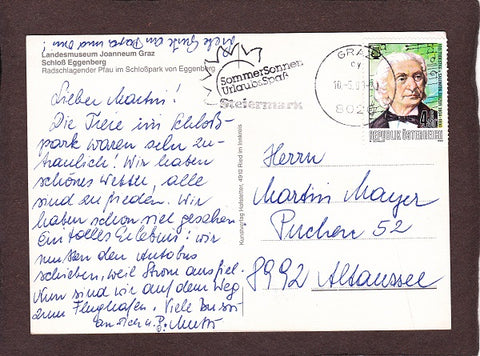 Viele Grüße an Papa und Omi!
Landesmuseum Joanneum Graz
Schloß Eggenberg
Radschlagender Pfau im Schloßpark von Eggenberg
Lieber Martin!
Die Tiere im Schloß-
park waren sehr zu-
traulich! Wir haben
schönes Wetter, alle
sind zufrieden. Wir
haben schon viel gesehen
Ein tolles Erlebnis: wir
mußten den Autobus
schieben, weil Strom ausfiel.
Nun sind wir auf dem Weg
zum Flughafen. Viele Bussi
an dich u. P. Mutti
SommerSonnen
UrlaubsSpaß
Steiermark
GRAZ
8020
REPUBLIK ÖSTERREICH
Kunstverlag Hofstetter, 4910 Ried im Innkreis
Herrn
Martin Mayer
Puchen 52
8992 Altaussee